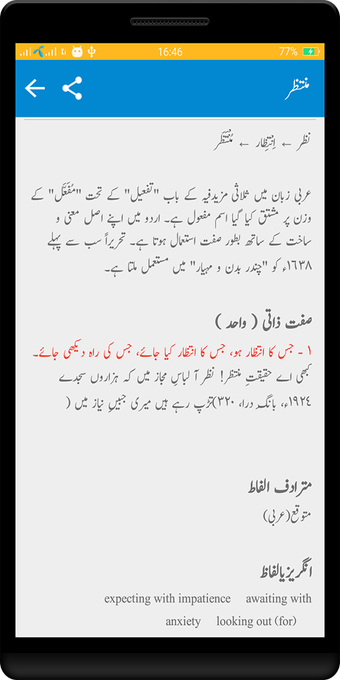 16:46 77%
منتظر
نظر ← اِنتِظار ← مُنْتَظَر
عربی زبان میں ثلاثی مزیدفیہ کے باب "تفعیل" کے تحت "مُفتَعَل" کے
وزن پر مشتق کیا گیا اسم مفعول ہے۔ اردو میں اپنے اصل معنی و
ساخت کے ساتھ بطور صفت استعمال ہوتا ہے۔ تحریراً سب سے پہلے
١٦٣٨ء کو "چندر بدن و مہیار" میں مستعمل ملتا ہے۔
صفت ذاتی ( واحد )
١ - جس کا انتظار ہو، جس کا انتظار کیا جائے، جس کی راہ دیکھی جائے۔
کبھی اے حقیقتِ منتظر! نظر آ لباسِ مجاز میں کہ ہزاروں سجدے
تڑپ رہے ہیں میری جبینِ نیاز میں ( ١٩٢٤ء، بانگِ درا، ٣٢٠)
مترادف الفاظ
متوقع(عربی)
انگریزی الفاظ
expecting with impatience awaiting with
anxiety looking out (for)